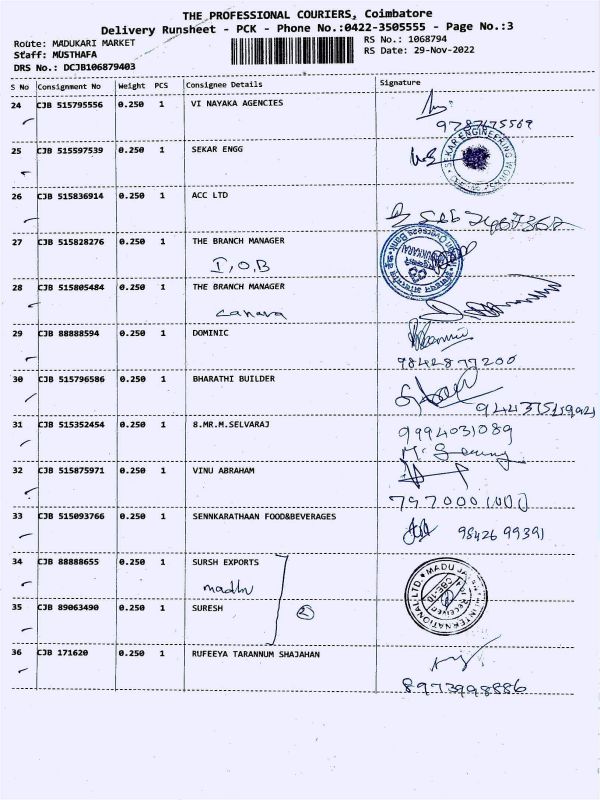 THE PROFESSIONAL COURIERS, Coimbatore
Delivery Runsheet - PCK - Phone No.:0422-3505555 - Page No.:3
Route: MADUKARI MARKET
Staff: MUSTHAFA
DRS No.: DCJB106879403
RS No.: 1068794
RS Date: 29-Nov-2022
S No Consignment No Weight PCS Consignee Details Signature
24 CJB 515795556 0.250 1 VI NAYAKA AGENCIES
25 CJB 515597539 0.250 1 SEKAR ENGG
SEKAR ENGINEERING WORKS
26 CJB 515836914 0.250 1 ACC LTD
27 CJB 515828276 0.250 1 THE BRANCH MANAGER
I.O.B
28 CJB 515805484 0.250 1 THE BRANCH MANAGER
canara
29 CJB 88888594 0.250 1 DOMINIC
9842877200
30 CJB 515796586 0.250 1 BHARATHI BUILDER
31 CJB 515352454 0.250 1 8.MR.M.SELVARAJ
9994031089
32 CJB 515875971 0.250 1 VINU ABRAHAM
33 CJB 515093766 0.250 1 SENNKARATHAAN FOOD&BEVERAGES
98426 99391
34 CJB 88888655 0.250 1 SURSH EXPORTS
madhu
35 CJB 89063490 0.250 1 SURESH
2
INTERNATIONAL LTD.
RECEIVED
36 CJB 171620 0.250 1 RUFEEYA TARANNUM SHAJAHAN
8973998886